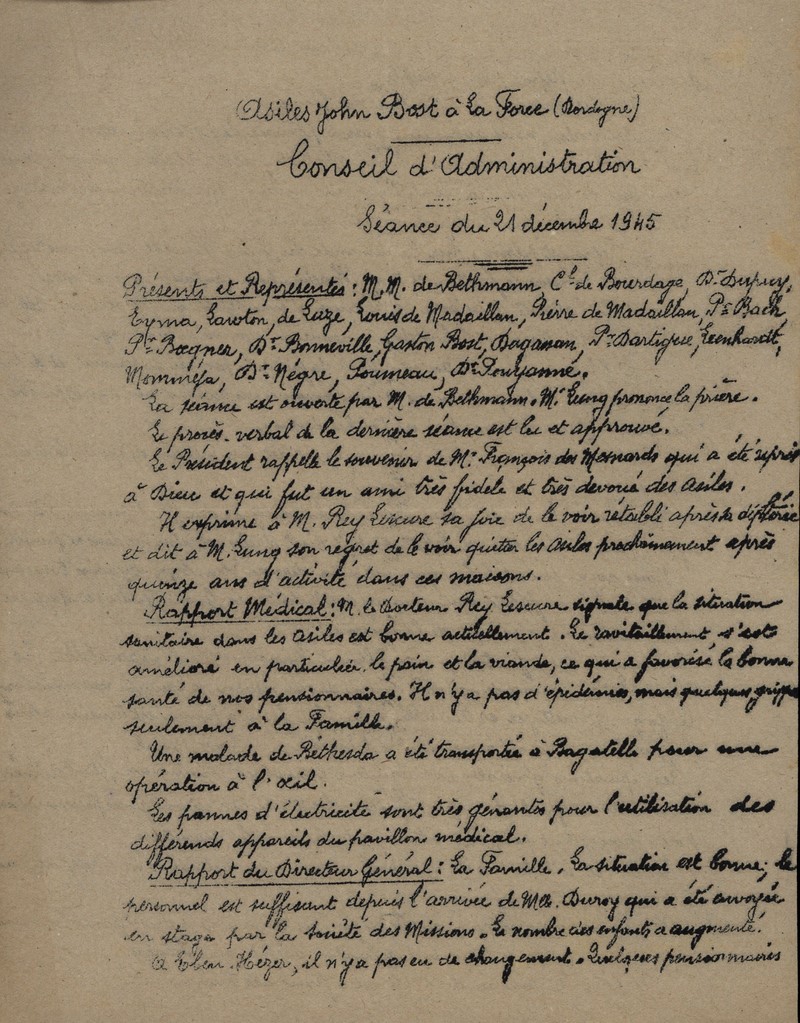 Asiles John Bost à La Force (Dordogne)
Conseil d'Administration
Séance du 21 décembre 1945
Présents et Représentés : M.M. de Bethmann, Cl de Bourdage, Dr Dupuy,
Eyma, Lawton, de Luze, Louis de Madaillan, Pierre de Madaillan, Pr Bach,
Pr Boegner, Dr Bonneville, Gaston Bost, Daganan, Pr Dartigue, Leenhardt,
Mommeja, Dr Nègre, Poumeau, Dr Pouyanne.
La séance est ouverte par M. de Bethmann. Mr Eung prononce la prière.
Le procès-verbal de la dernière séance est lu et approuvé.
Le Président rappelle le souvenir de Mr François des Mesnards qui a été repris
à Dieu et qui fut un ami très fidèle et très devoué des asiles.
Il exprime à M. Rey Lescure sa joie de le voir rétabli après la diphtérie
et dit à M. Eung son regret de le voir quitter les asiles prochainement après
quinze ans d'activité dans ces maisons.
Rapport Médical : M. le Docteur Rey Lescure signale que la situation
sanitaire dans les asiles est bonne actuellement. Le ravitaillement s'est
amélioré en particulier le pain et la viande, ce qui a favorisé la bonne
santé de nos pensionnaires. Il n'y a pas d'épidémies, mais quelques grippes
seulement à la Famille.
Une malade de Béthesda a été transportée à Bagatelle pour une
opération à l'œil.
Les pannes d'électricité sont très gênantes pour l'utilisation des
différends appareils du pavillon médical.
Rapport du Directeur Général : La Famille. La situation est bonne; le
personnel est suffisant depuis l'arrivée de Mlle Duroy qui a été envoyée
en stage par la Société des Missions. Le nombre des enfants a augmenté.
A Eben-Hézer, il n'y a pas eu de changement. Quelques pensionnaires